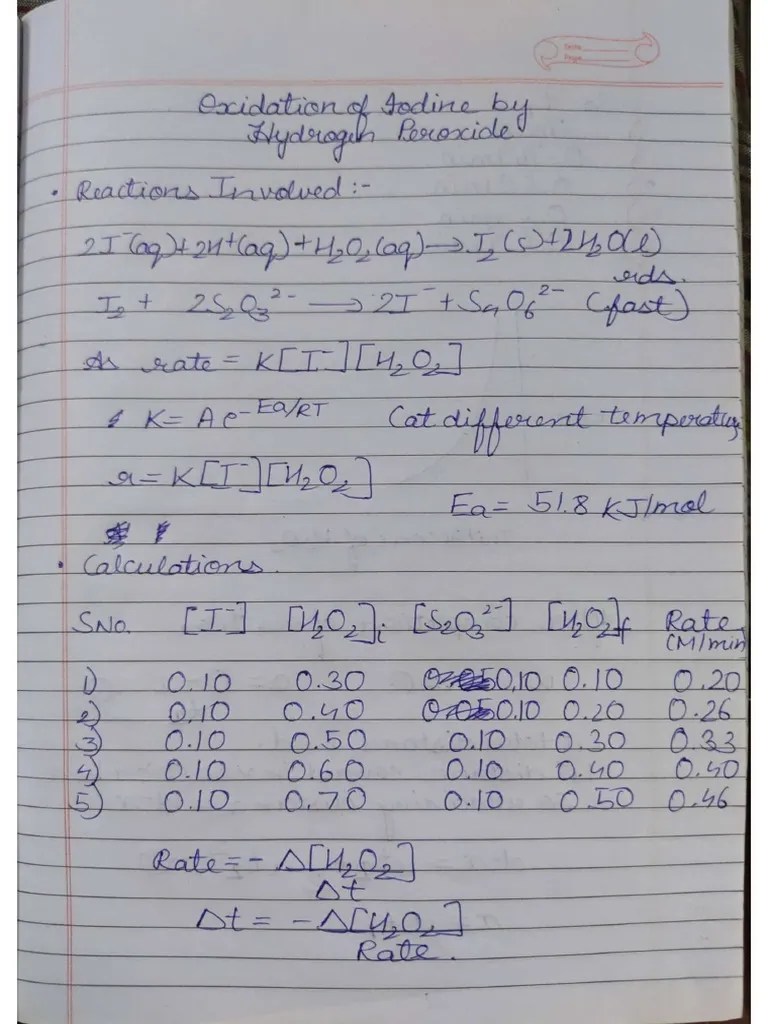 Date
Page
Oxidation of Iodine by
Hydrogen Peroxide
• Reactions Involved :-
2I⁻(aq)+2H⁺(aq)+H₂O₂(aq)→I₂(s)+2H₂O(l)
rds.
I₂ + 2S₂O₃²⁻ → 2I⁻ + S₄O₆²⁻ (fast)
As rate = K[I⁻][H₂O₂]
K = A e^-Ea/RT (at different temperature
r = K[I⁻][H₂O₂]
Ea = 51.8 KJ/mol
• Calculations.
SNo. [I⁻] [H₂O₂]i [S₂O₃²⁻] [H₂O₂]f Rate (M/min)
1) 0.10 0.30 0.10 0.10 0.20
2) 0.10 0.40 0.10 0.20 0.26
3) 0.10 0.50 0.10 0.30 0.33
4) 0.10 0.60 0.10 0.40 0.40
5) 0.10 0.70 0.10 0.50 0.46
Rate = - Δ[H₂O₂]
Δt
Δt = - Δ[H₂O₂]
Rate.